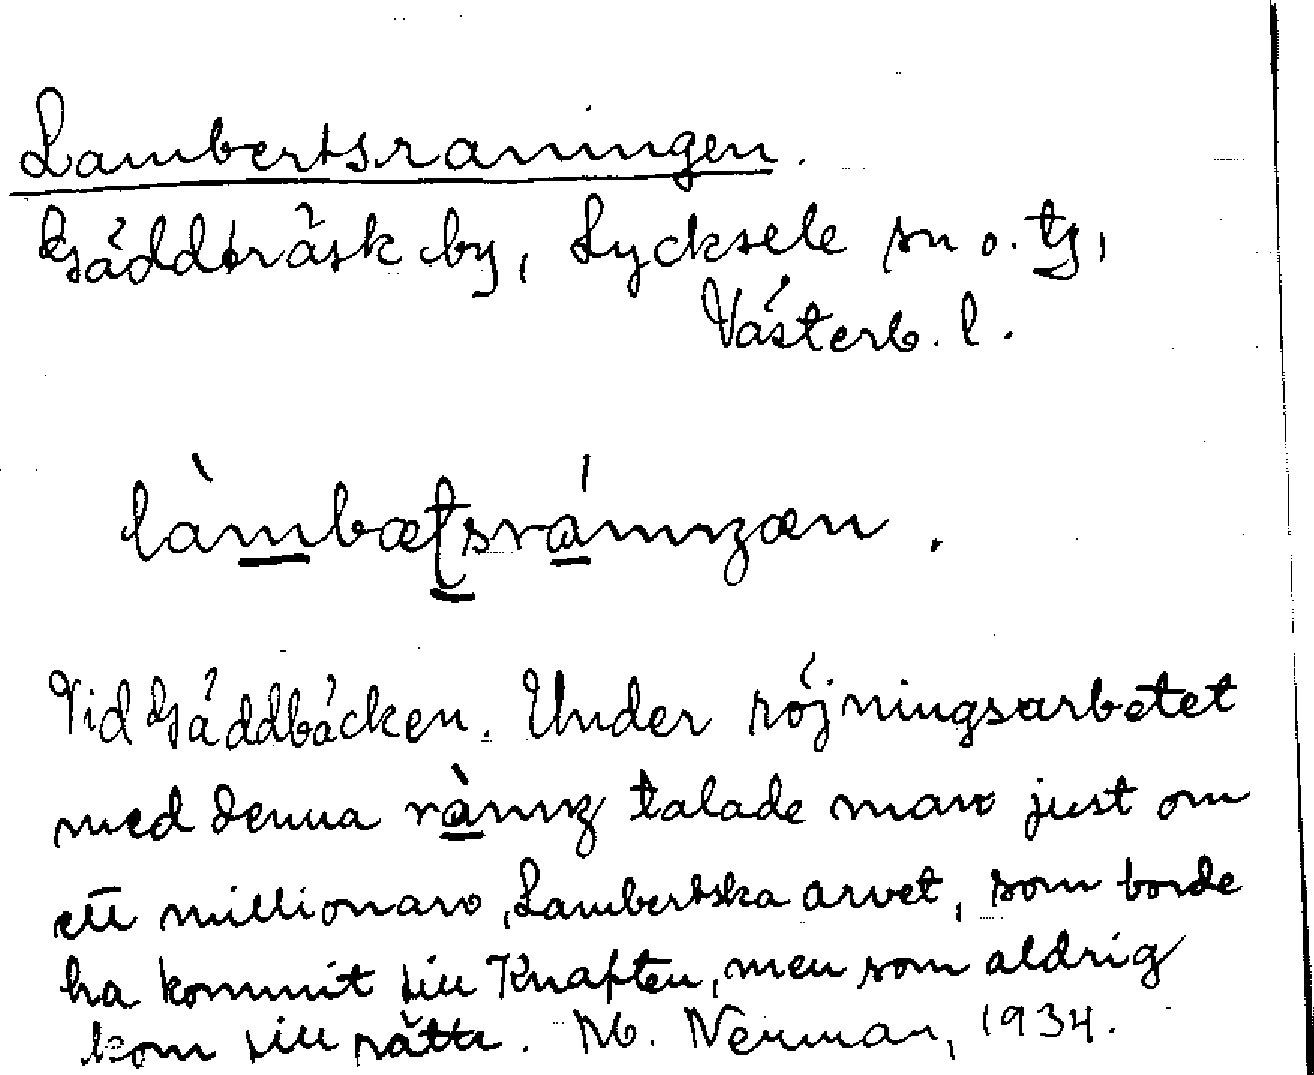 Lambertsraningen.
Gäddträsk by, Lycksele sn o. tg,
Västerb. l.
làmbæt̡srániŋæn.
Vid Gäddbäcken. Under röjningsarbetet
med denna ràniŋ talade man just om
ett millionarv, Lambertska arvet, som borde
ha kommit till Knaften, men som aldrig
kom till rätta. M. Nerman, 1934.